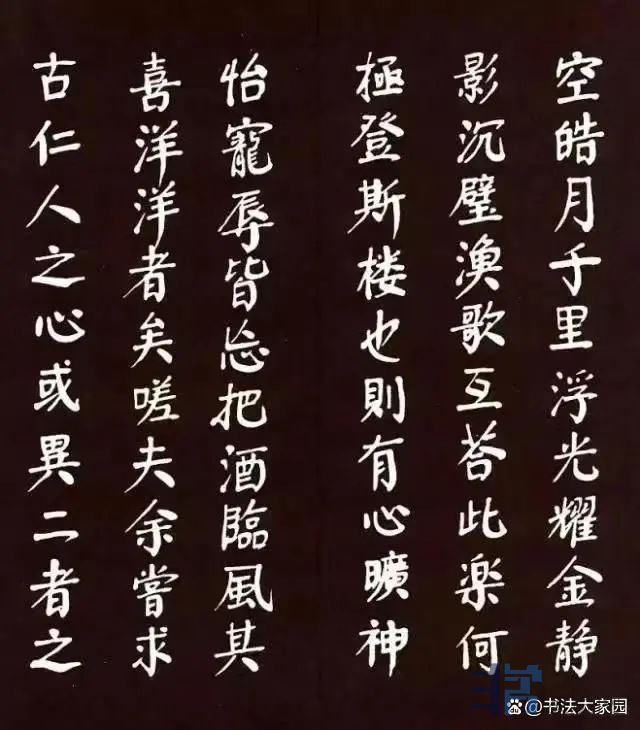 空皓月千里浮光耀金静
影沉璧漁歌互荅此楽何
極登斯楼也則有心曠神
怡寵辱皆忘把酒臨風其
喜洋洋者矣嗟夫余嘗求
古仁人之心或異二者之
@书法大家园